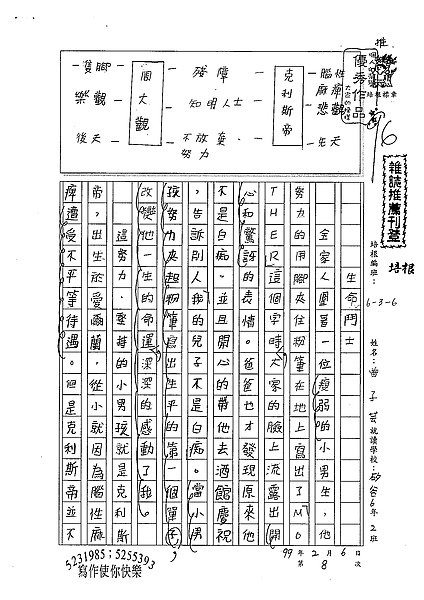 推
優秀作品
培根標章
雜誌推薦刊登
培根
腦性麻痺 悲觀 先天
克利斯帝
殘障 知明人士 不放棄、努力
周大觀
雙腳 樂觀 後天
培根編班：6-3-6 姓名：曾子芸 就讀學校：矽谷6年2班
99年2月6日
第8次
生命鬥士
全家人圍著一位瘦弱的小男生，他
努力的用腳夾住粉筆在地上寫出了MO
THER這個字時，大家的臉上流露出開
心和驚訝的表情。爸爸也才發現原來他
不是白痴。並且開心的帶他去酒館慶祝
，告訴別人我的兒子不是白痴。當小男
孩努力夾起粉筆寫出生平的第一個單字，
改變他一生的命運，深深的感動了我。
這努力、堅持的小男孩就是克利斯
帝，出生於愛爾蘭，從小就因為腦性麻
痺遭受不平等待遇。但是克利斯帝並不
5231985；5255393
寫作使你快樂